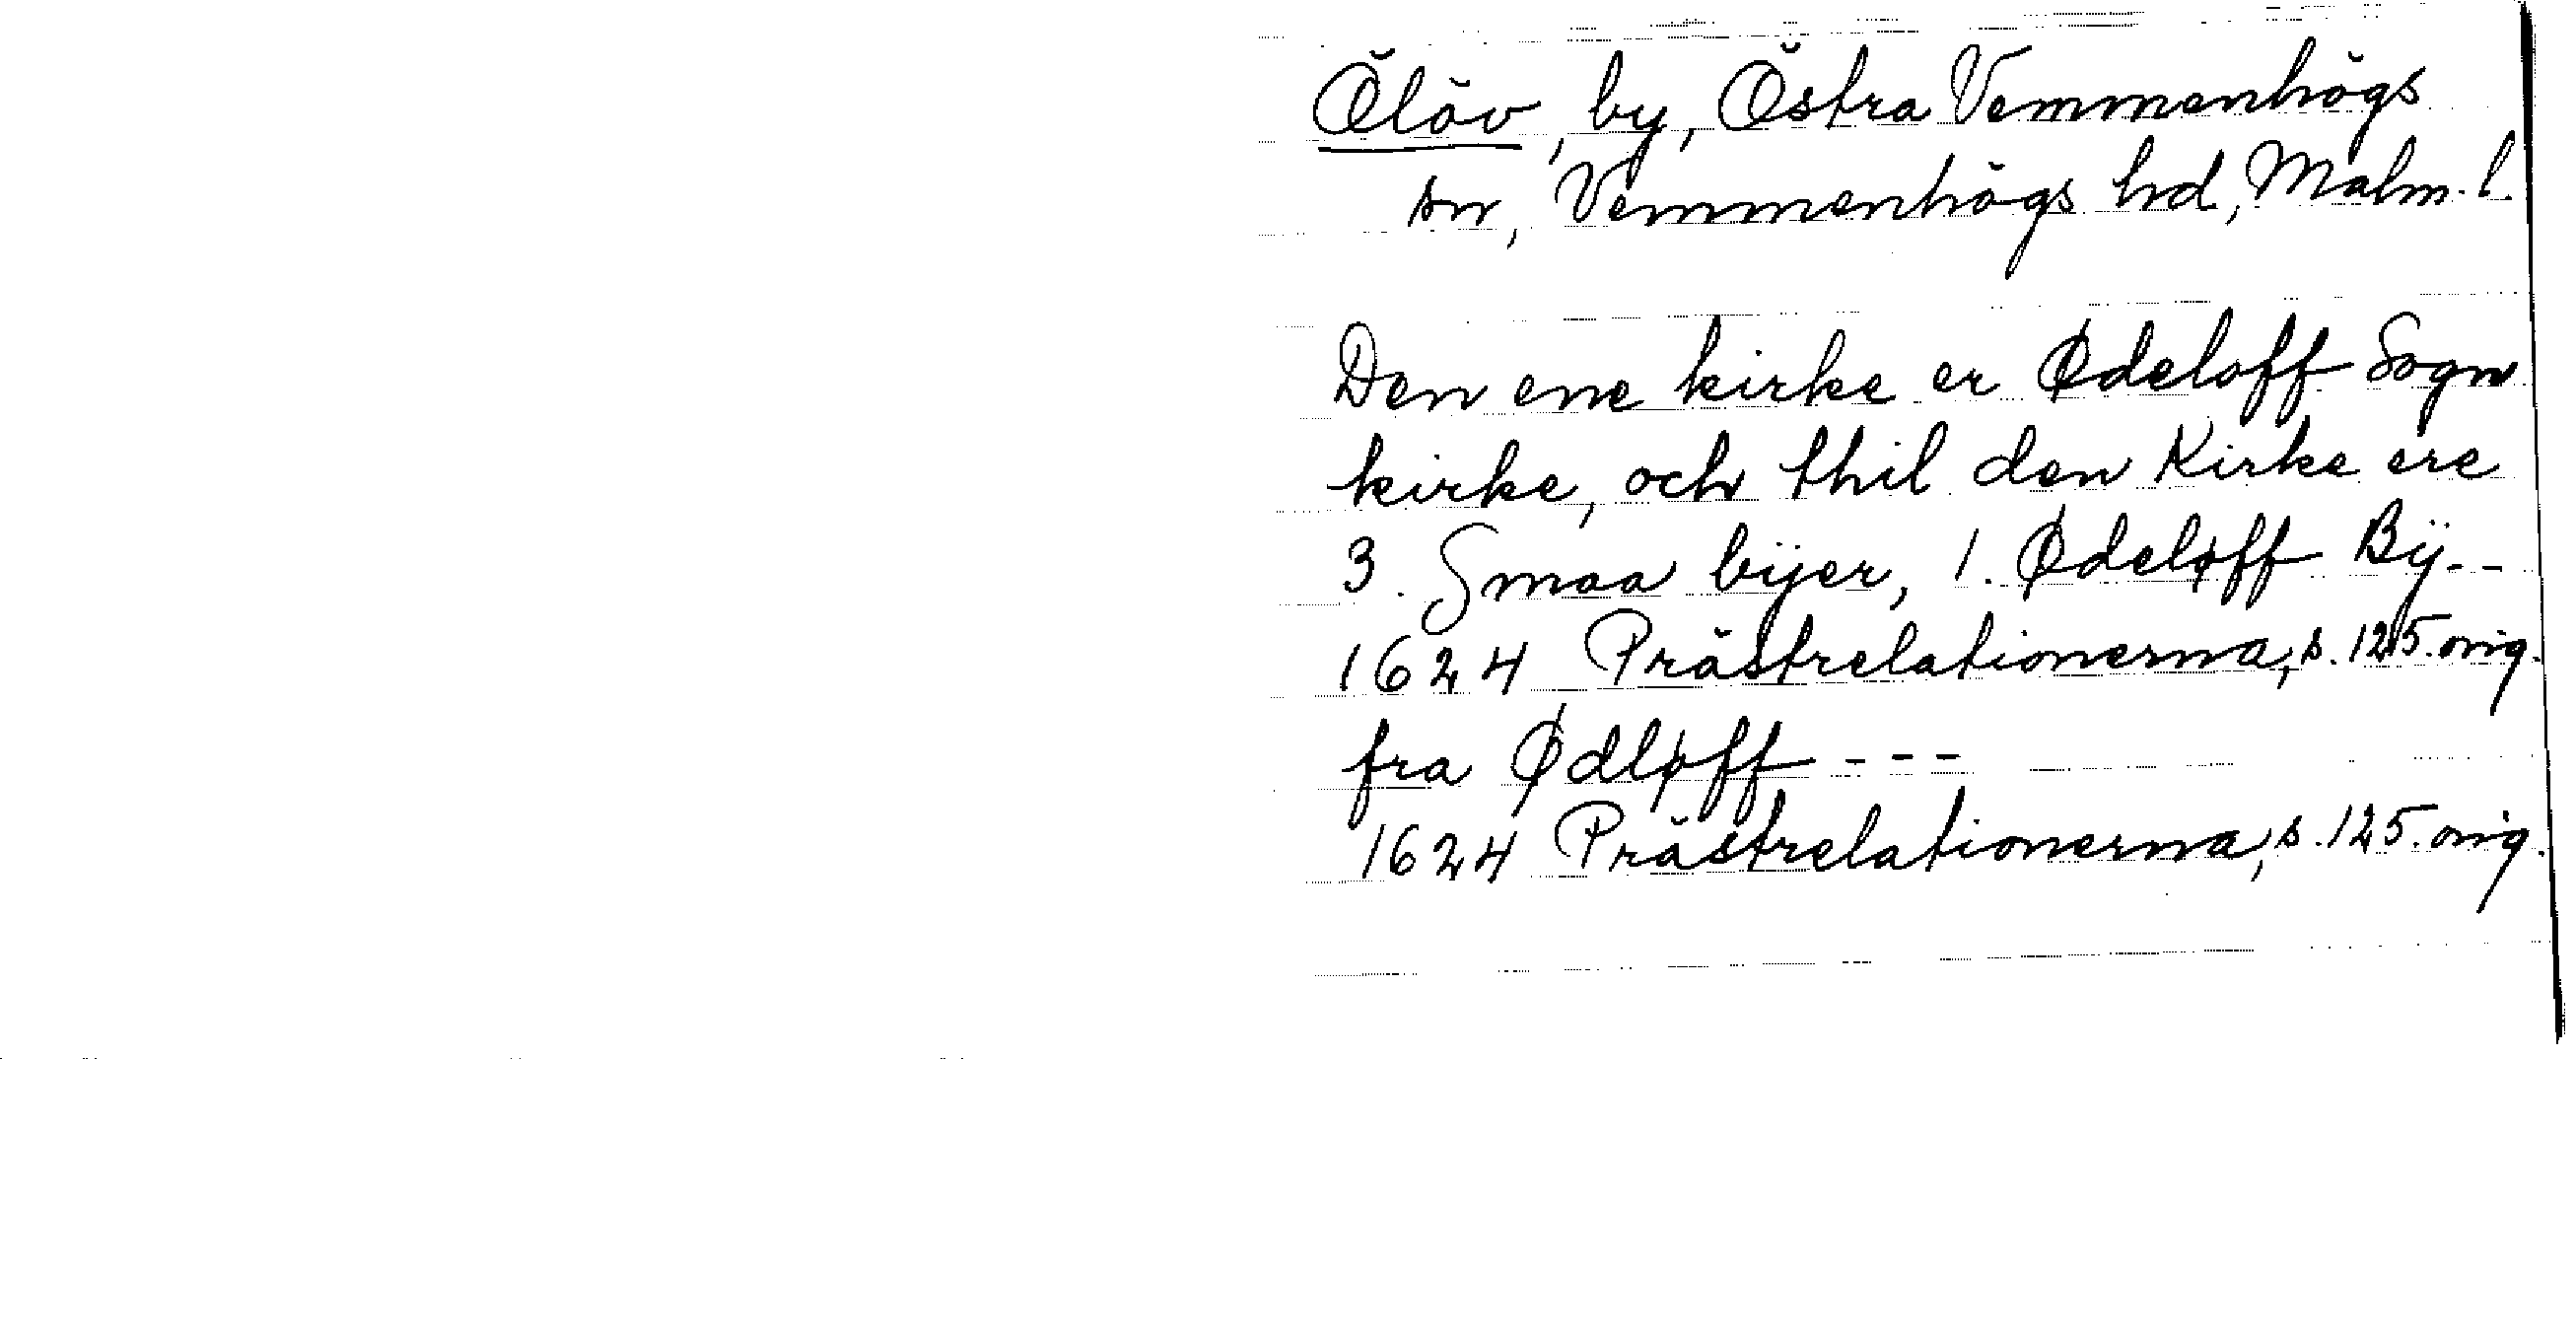 Ölöv, by, Östra Vemmenhögs
sn, Vemmenhögs hd, Malm. l.
Den ene kirke er Ødeloff Sogn
kirke, och thil den Kirke ere
3. Smaa bÿer, 1. Ødeløff Bÿ--
1624 Prästrelationerna, s. 125. orig.
fra Ødløff ---
1624 Prästrelationerna, s. 125. orig.